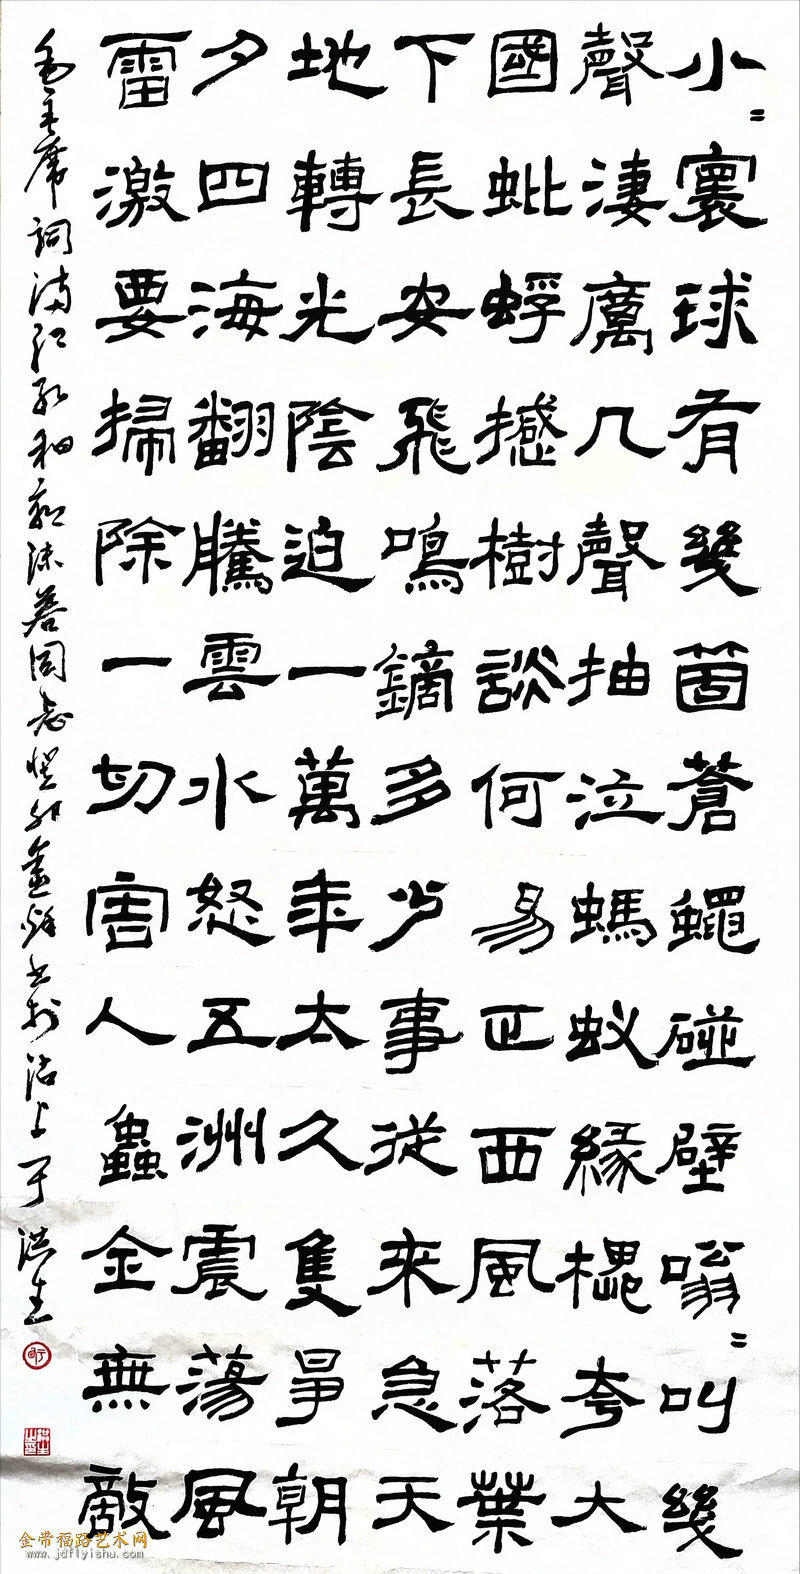 小〻寰球有幾箇蒼蠅碰壁嗡〻叫幾
聲淒厲几聲抽泣螞蚁緣槐夸大
國蚍蜉撼樹談何易正西風落葉
下長安飛鳴鏑多少事從来急天
地轉光陰迫一萬年太久隻爭朝
夕四海翻騰雲水怒五洲震蕩風
雷激要掃除一切害人蟲全無敵
毛主席詞满江红和郭沫若同志癸卯金秋书於沽上于洪生
金带福路艺术网
www.jdflyishu.com